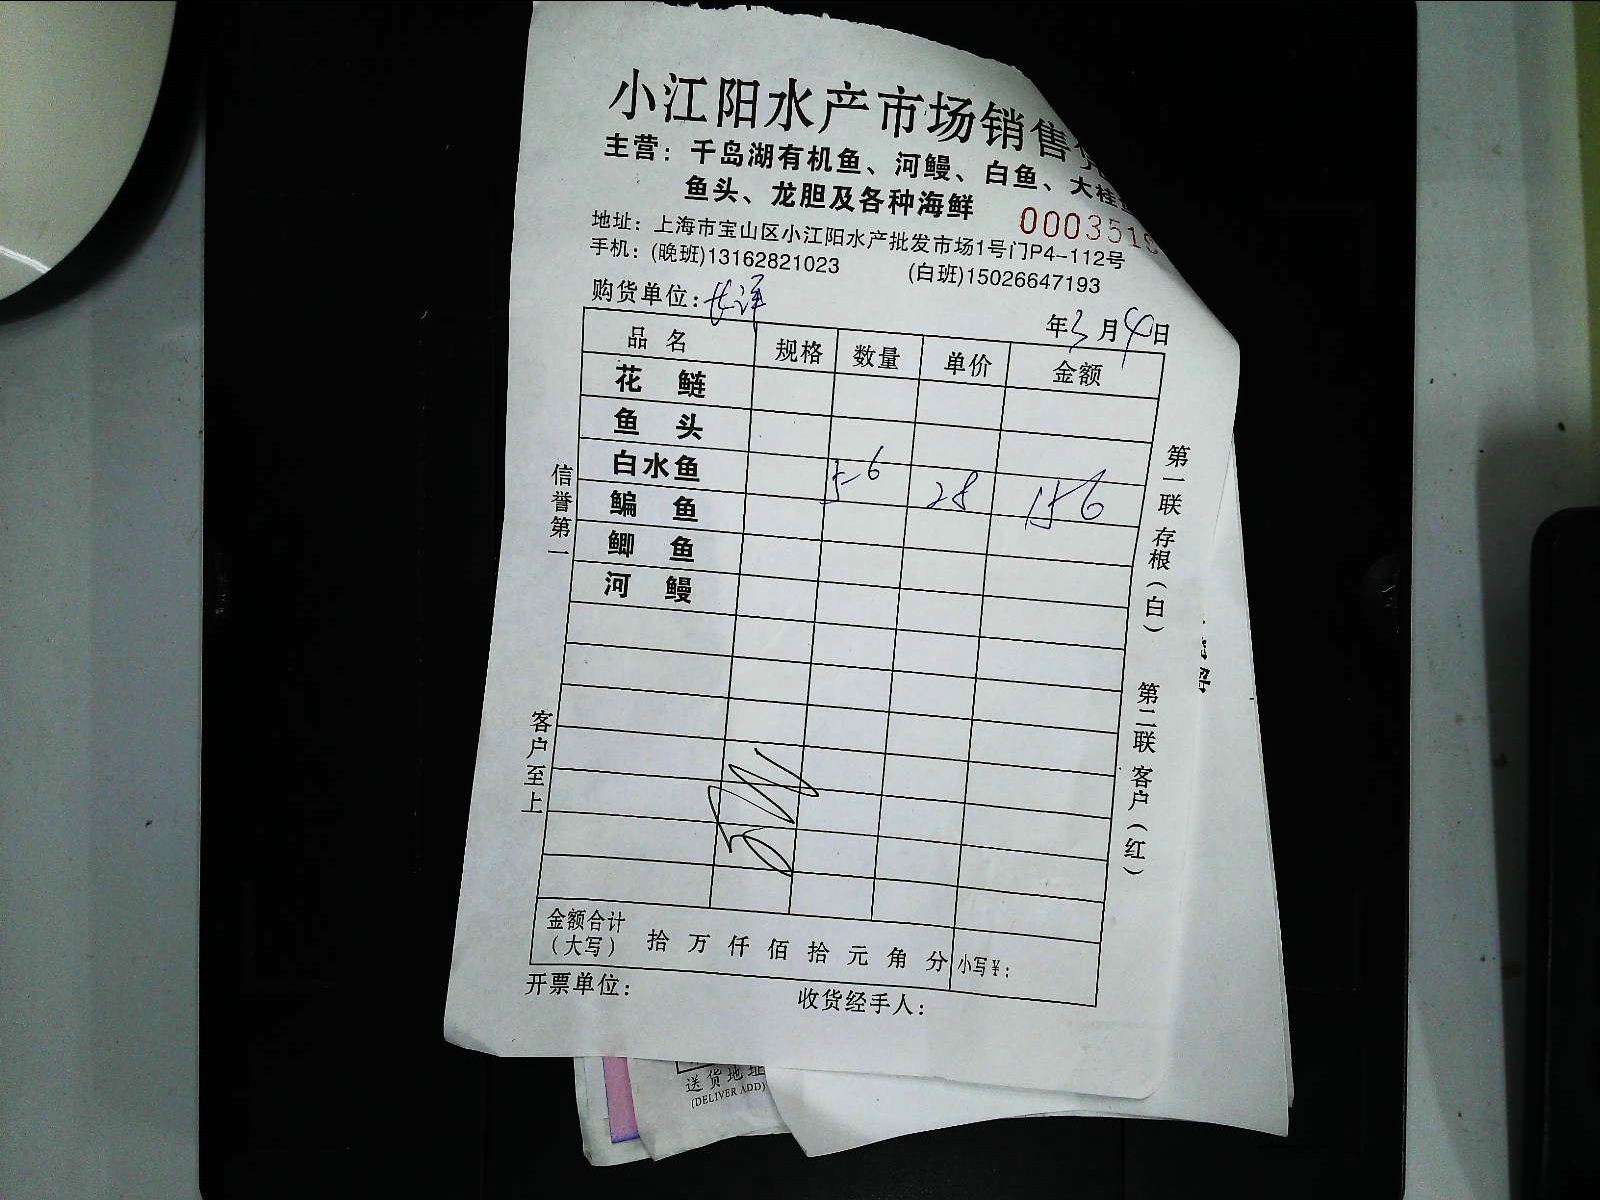 小江阳水产市场销售
主营：千岛湖有机鱼、河鳗、白鱼、大桂
鱼头、龙胆及各种海鲜
000351
地址：上海市宝山区小江阳水产批发市场1号门P4-112号
手机：(晚班)13162821023 (白班)15026647193
购货单位：长洋 年3月4日
品名 规格 数量 单价 金额
花鲢
鱼头
白水鱼 5-6 28 156
鳊鱼
鲫鱼
河鳗
信誉第一
客户至上
第一联 存根（白）
第二联 客户（红）
金额合计（大写） 拾 万 仟 佰 拾 元 角 分 小写￥：
开票单位： 收货经手人：
送货地址
(DELIVER ADD)